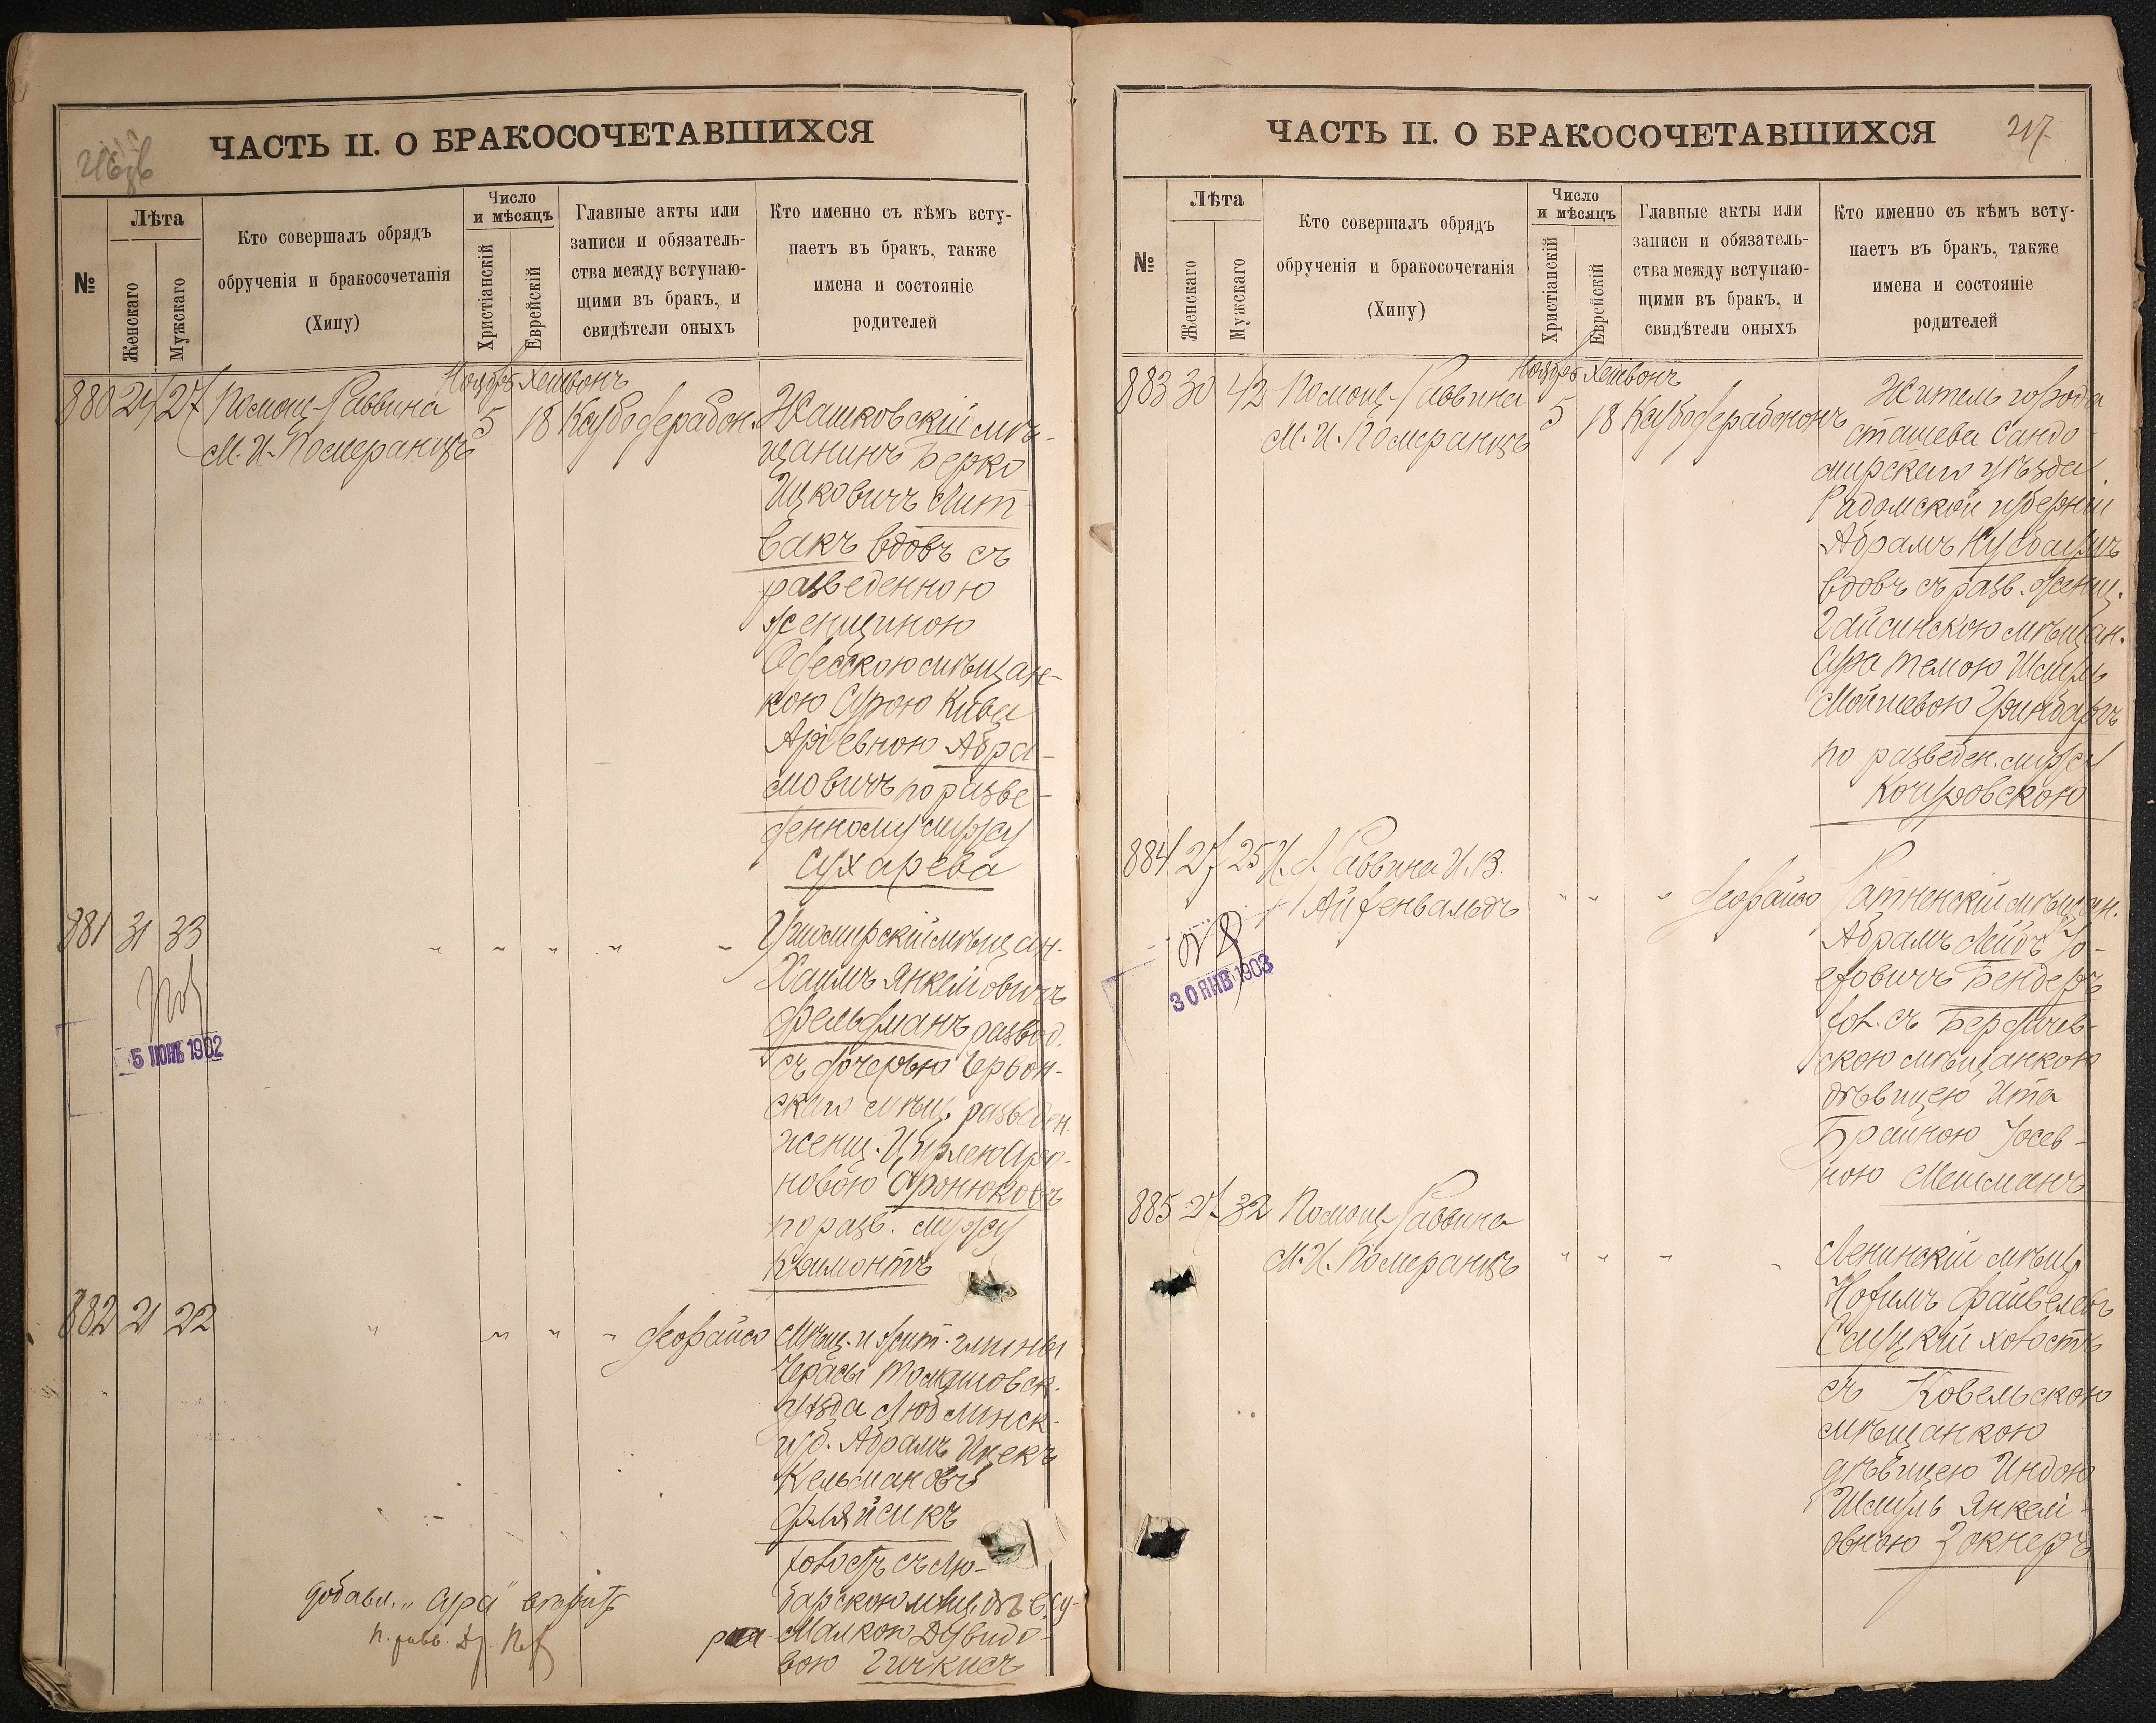 ЧАСТЬ II. О БРАКОСОЧЕТАВШИХСЯ
№
Лѣта
Женскаго
Мужскаго
Кто совершалъ обрядъ
обрученія и бракосочетанія
(Хипу)
Число
и мѣсяцъ
Христіанскій
Еврейскій
Главные акты или
записи и обязатель-
ства между вступаю-
щими въ бракъ, и
свидѣтели оныхъ
Кто именно съ кѣмъ всту-
паетъ въ бракъ, также
имена и состояніе
родителей
Ноябрь Хешвонъ
880 24 27 Помощ. Раввина
М. И. Померанцъ
5 18
Жашковскій мѣ-
щанинъ Берко
Ицковичъ Лит-
вакъ вдовъ съ
разведенною
женщиною
Одесскою мѣщан-
кою Сурою Кива
Аріевною Абра-
мовичъ по разве-
денному мужу
Сухарева
881 31 33 " " " " "
Ушомирскій мѣщан.
Хаимъ Янкелiовичъ
Фельдманъ развод.
съ дочерью Чернон-
скаго мѣщ. разведен.
женщ. Цирлею
новою
по разв. мужу
5 ИЮНЬ 1902
882 21 22 " " " "
Мѣщ. и жит. гмины
уѣзда Люблинск.
губ. Абрамъ Ицекъ
Кельмановъ
Фляйсикъ
холостъ съ Лю-
барскою мѣщ. дѣв. Су-
ра Малкою Дувидо-
вою Гичкисъ
Добавл. "Сура" вѣрить
ЧАСТЬ II. О БРАКОСОЧЕТАВШИХСЯ
217
№
Лѣта
Женскаго
Мужскаго
Кто совершалъ обрядъ
обрученія и бракосочетанія
(Хипу)
Число
и мѣсяцъ
Христіанскій
Еврейскій
Главные акты или
записи и обязатель-
ства между вступаю-
щими въ бракъ, и
свидѣтели оныхъ
Кто именно съ кѣмъ всту-
паетъ въ бракъ, также
имена и состояніе
родителей
Ноябрь Хешвонъ
883 30 42 Помощ. Раввина
М. И. Померанцъ
5 18
Житель города
Сташева Сандо-
мирскаго уѣзда
Радомской губерніи
Абрамъ Нусбаумъ
вдовъ съ разв. женщ.
Гайсинскою мѣщан.
Сура Темою Шмуль
Мойшевою Гринбаумъ
по разведен. мужу
Кочуровскою
884 27 25 И. д. Раввина И. В.
Айзенвальдъ " " "
Ратненскій мѣщан.
Абрамъ Лейбъ Іо-
сифовичъ Бендеръ
хол. съ Бердичев-
скою мѣщанкою
дѣвицею Ита
Браиною Іосев-
ною Мешманъ
30 ЯНВ 1903
885 27 32 Помощ. Раввина
М. И. Померанцъ " " " "
Ленинскій мѣщ.
Нохимъ Файвелевъ
Слуцкій холостъ
съ Ковельскою
мѣщанкою
дѣвицею Индою
Шмуль Янкелi-
овною Зокнеръ